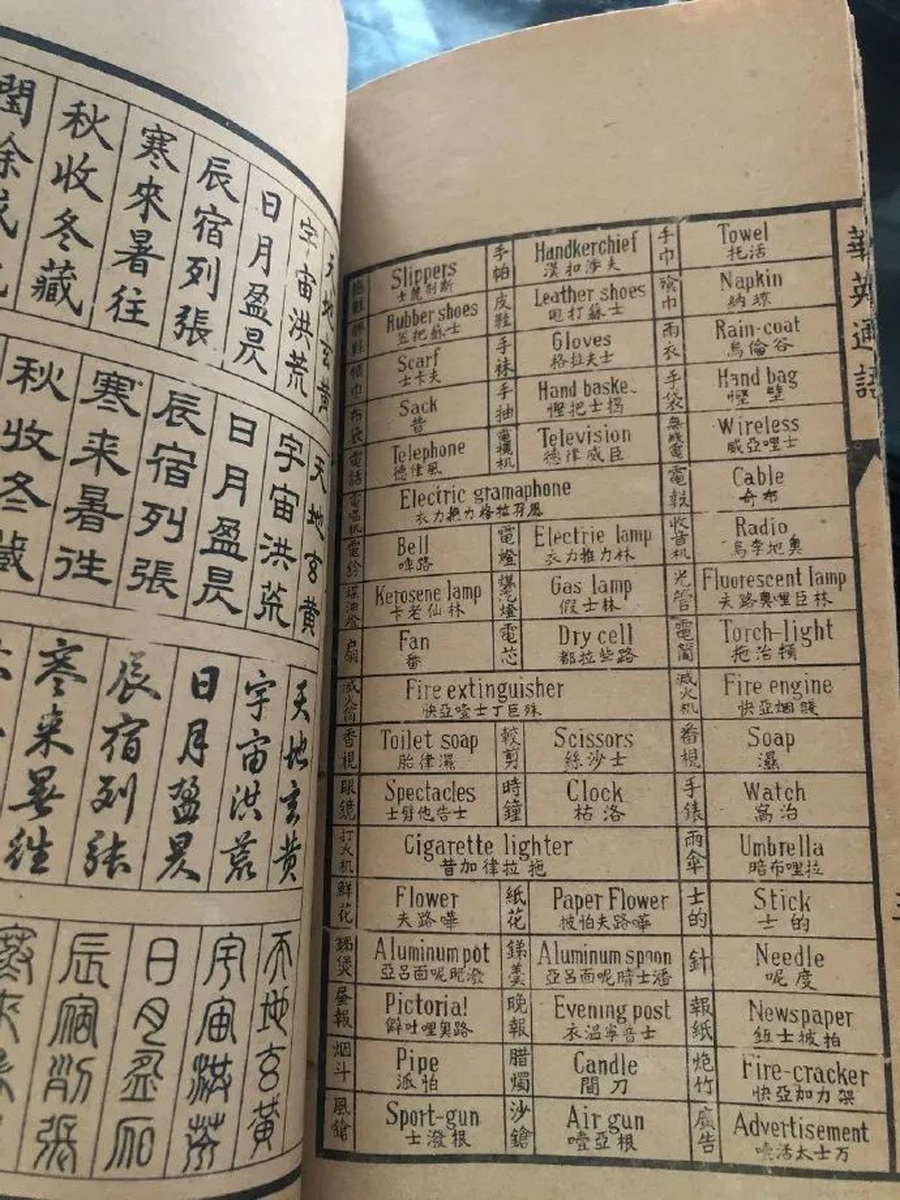 天地玄黃
宇宙洪荒
日月盈昃
辰宿列張
寒來暑往
秋收冬藏
閏餘成
天地玄黃
宇宙洪荒
日月盈昃
辰宿列張
寒来暑往
秋收冬藏
天地玄黄
宇宙洪荒
日月盈昃
辰宿列张
寒来暑往
天地玄黃
宇宙洪荒
日月盈昃
辰宿列張
寒來
華英通語
Slippers 手帕 Handkerchief 手巾 Towel
士麗剖斯 漢扣涉夫 托活
Rubber shoes 皮鞋 Leather shoes Napkin
蘇士 打蘇士 納
Scarf 手袜 Gloves 雨衣 Rain-coat
士卡夫 格拉夫士 烏倫谷
布袋 Sack 手抽 Hand baske 手袋 Hand bag
昔 慳把士 慳
電話 Telephone 電視机 Television 無綫電 Wireless
德律風 德律威臣 威亞哩士
電唱机 Electric gramaphone 電報 Cable
衣力拖力格拉孚風 奇布
電鈴 Bell 電燈 Electric lamp 收音机 Radio
啤路 衣力推力林 烏李地奧
煤油燈 Kerosene lamp 煤气燈 Gas lamp 光管 Fluorescent lamp
卡老仙林 假士林 夫路奧哩臣林
扇 Fan 電芯 Dry cell 電筒 Torch-light
番 都拉些路 拖治頼
滅火筒 Fire extinguisher 滅火机 Fire engine
快亞噎士丁臣殊 快亞烟
香梘 Toilet soap 較剪 Scissors 番梘 Soap
胎律濕 絲沙士 濕
眼鏡 Spectacles 時鐘 Clock 手錶 Watch
士劈他告士 枯洛 窩治
打火机 Cigarette lighter 雨傘 Umbrella
昔加律拉拖 暗布哩拉
鮮花 Flower 紙花 Paper Flower 士的 Stick
夫路嘩 披怕夫路嘩 士的
銻煲 Aluminum pot 銻羹 Aluminum spoon 針 Needle
亞呂面呢 亞呂面呢 呢度
昼報 Pictorial 晚報 Evening post 報紙 Newspaper
僻吐哩奧路 衣温寧普士 鈕士披拍
烟斗 Pipe 腊燭 Candle 炮竹 Fire-cracker
派怕 間刀 快亞加力架
風鎗 Sport-gun 沙鎗 Air gun 廣告 Advertisement
士潑根 噎亞根 活太士万